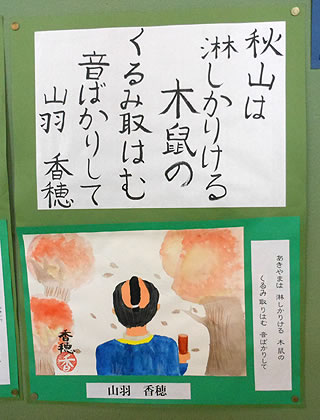 秋山は
淋しかりける
木鼠の
くるみ取はむ
音ばかりして
山羽 香穂
あきやまは 淋しかりける 木鼠の
くるみ取りはむ 音ばかりして
香穂
香
山羽 香穂